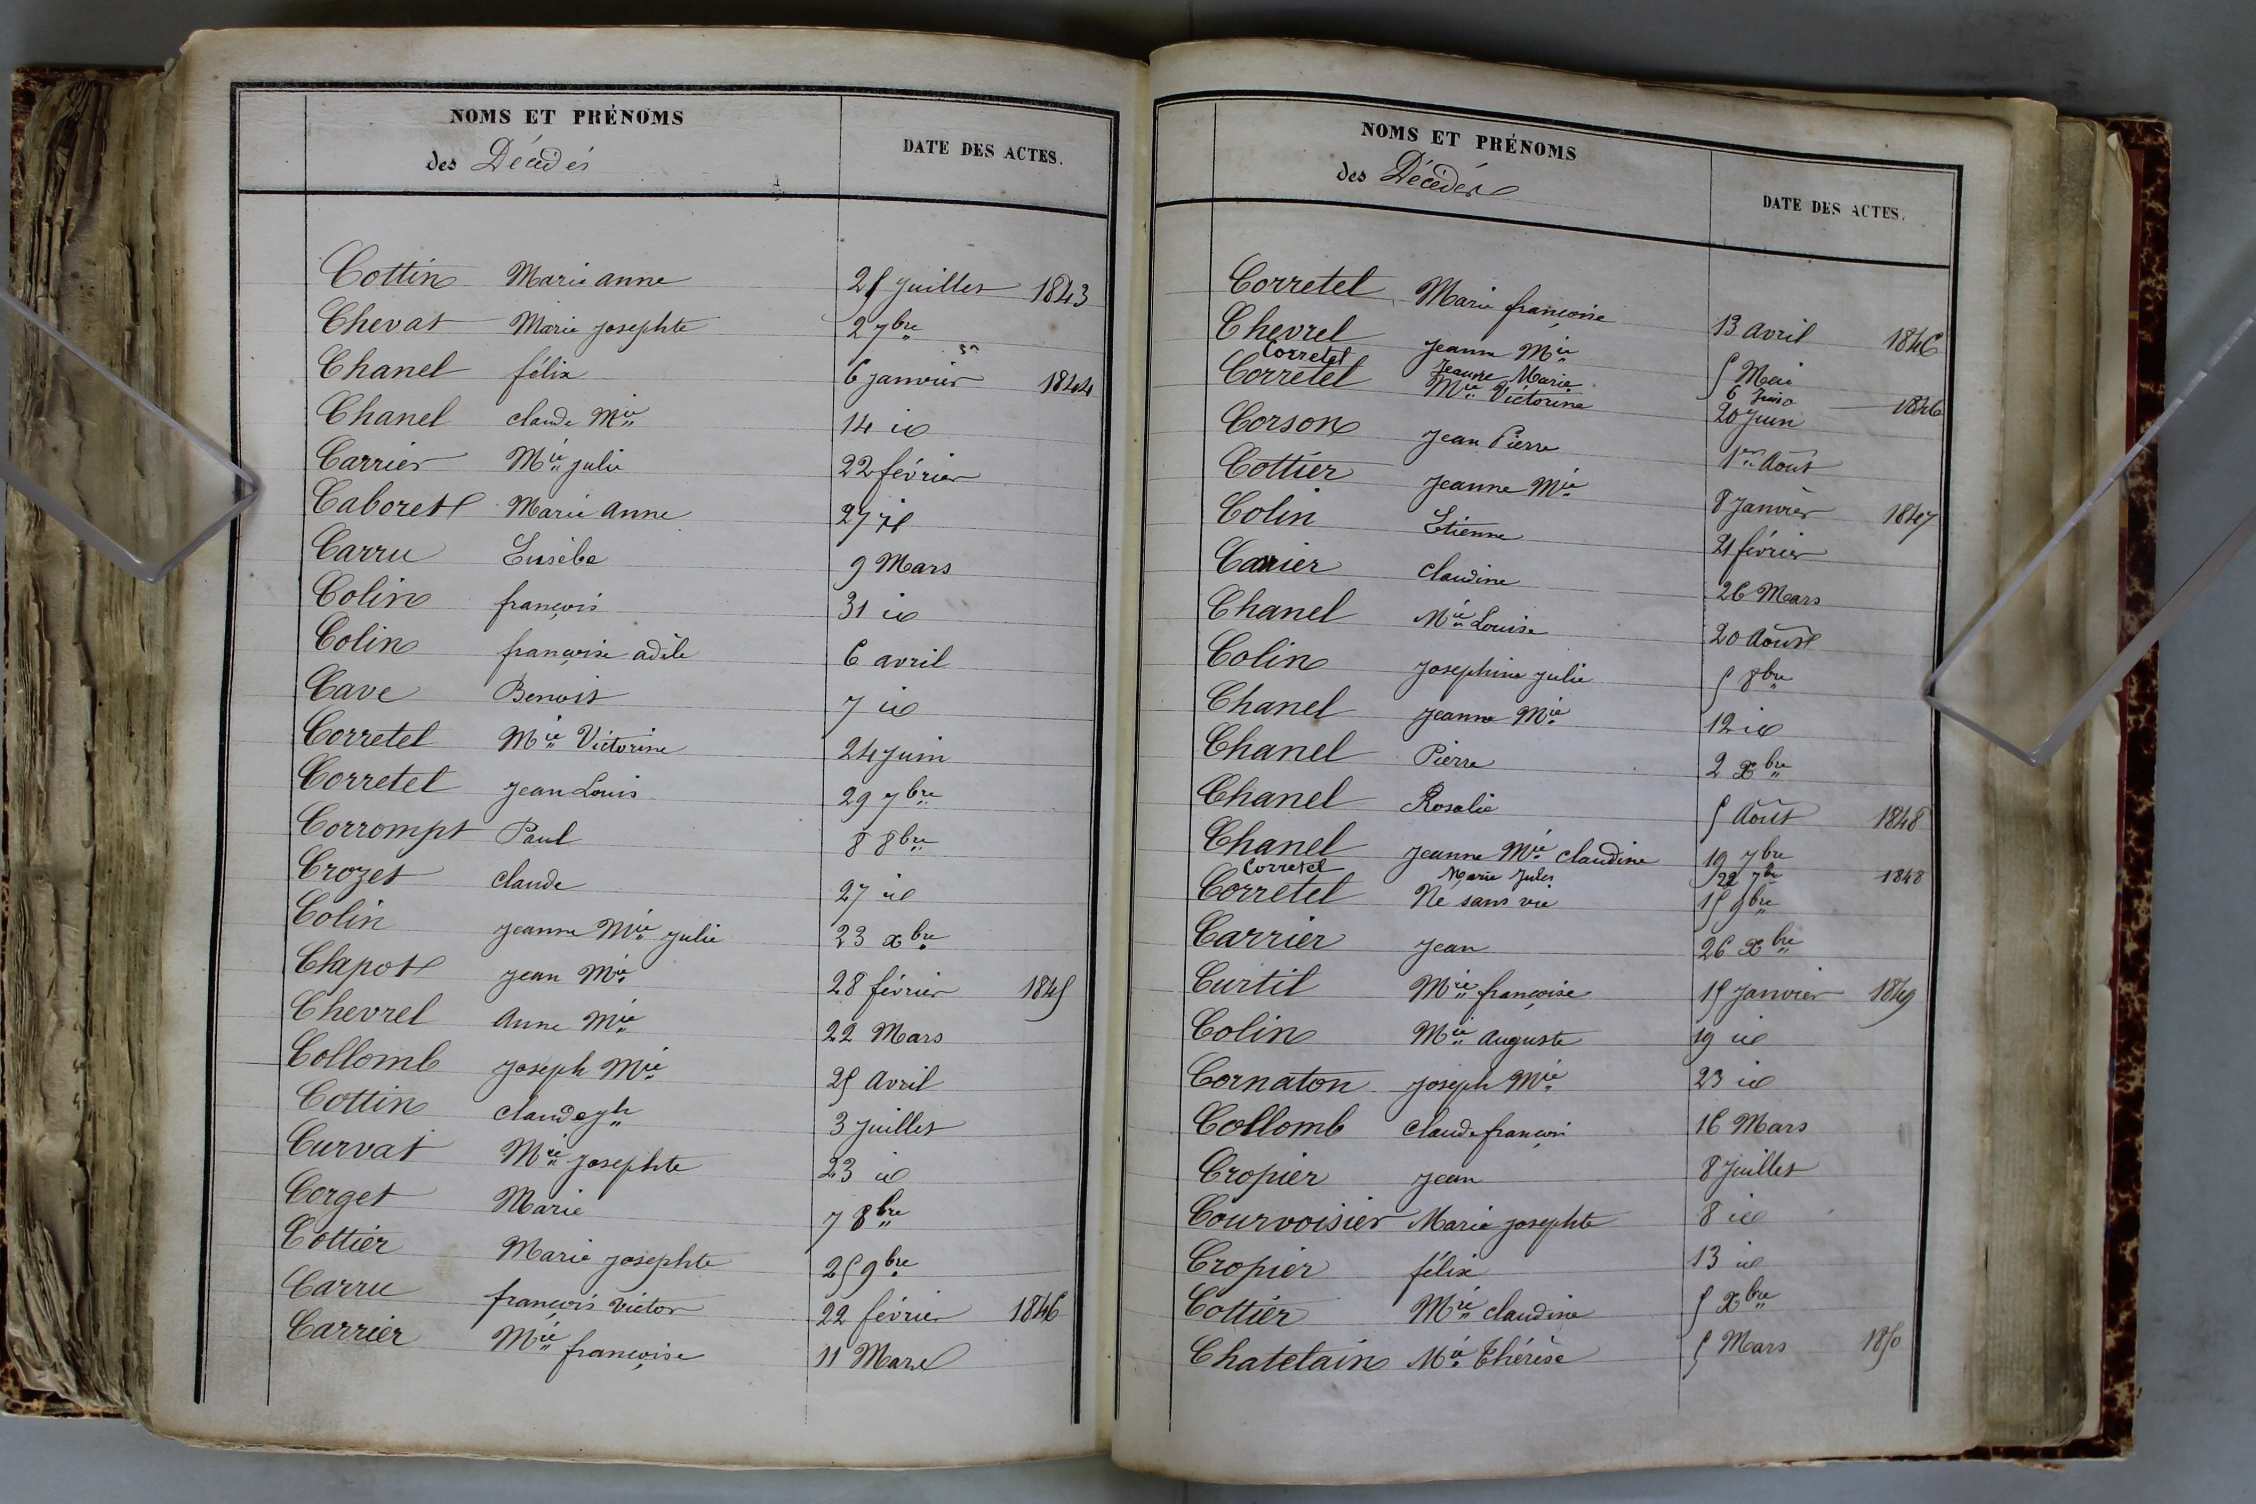 NOMS ET PRÉNOMS
des Décédés
DATE DES ACTES.
Cottin Marie anne 25 juillet 1843
Chevat Marie josephte 2 7bre
Chanel félix 6 janvier 1844
Chanel claude Mie 14 id
Carrier Mie julie 22 février
Caboret Marie Anne 27 id
Carru Eusèbe 9 Mars
Colin françois 31 id
Colin françoise adèle 6 avril
Cave Benoit 7 id
Corretel Mie Victorine 24 juin
Corretel jean Louis 29 7bre
Corrompt Paul 8 8bre
Crozet claude 27 id
Colin jeanne Mie julie 23 xbre
Chapot jean Mie 28 février 1845
Chevrel Anne Mie 22 Mars
Collomb joseph Mie 25 Avril
Cottin claude jh 3 juillet
Curvat Mie josephte 23 id
Corget Marie 7 8bre
Cottier Marie josephte 25 9bre
Carru françois victor 22 février 1846
Carrier Mie françoise 11 Mars
NOMS ET PRÉNOMS
des Décédés
DATE DES ACTES.
Corretel Marie françoise 13 avril 1846
Chevrel jeanne Mie 5 Mai
Corretet Jeanne Marie 6 juin 1846
Corretel Mie Victorine 20 Juin
Corson jean Pierre 1er Août
Cottier jeanne Mie 8 Janvier 1847
Colin Etienne 21 février
Carrier claudine 26 Mars
Chanel Mie Louise 20 Août
Colin josephine julie 5 8bre
Chanel jeanne Mie 12 id
Chanel Pierre 2 xbre
Chanel Rosalie 5 Août 1848
Chanel jeanne Mie claudine 19 7bre
Corretel Marie Jules 22 7bre 1848
Corretel Né sans vie 15 9bre
Carrier jean 26 xbre
Curtil Mie françoise 15 janvier 1849
Colin Mie auguste 19 id
Cornaton joseph Mie 23 id
Collomb claude françois 16 Mars
Cropier jean 8 juillet
Courvoisier Marie josephte 8 id
Cropier félix 13 id
Cottier Mie claudine 5 xbre
Chatelain Mie Thérèse 5 Mars 1850